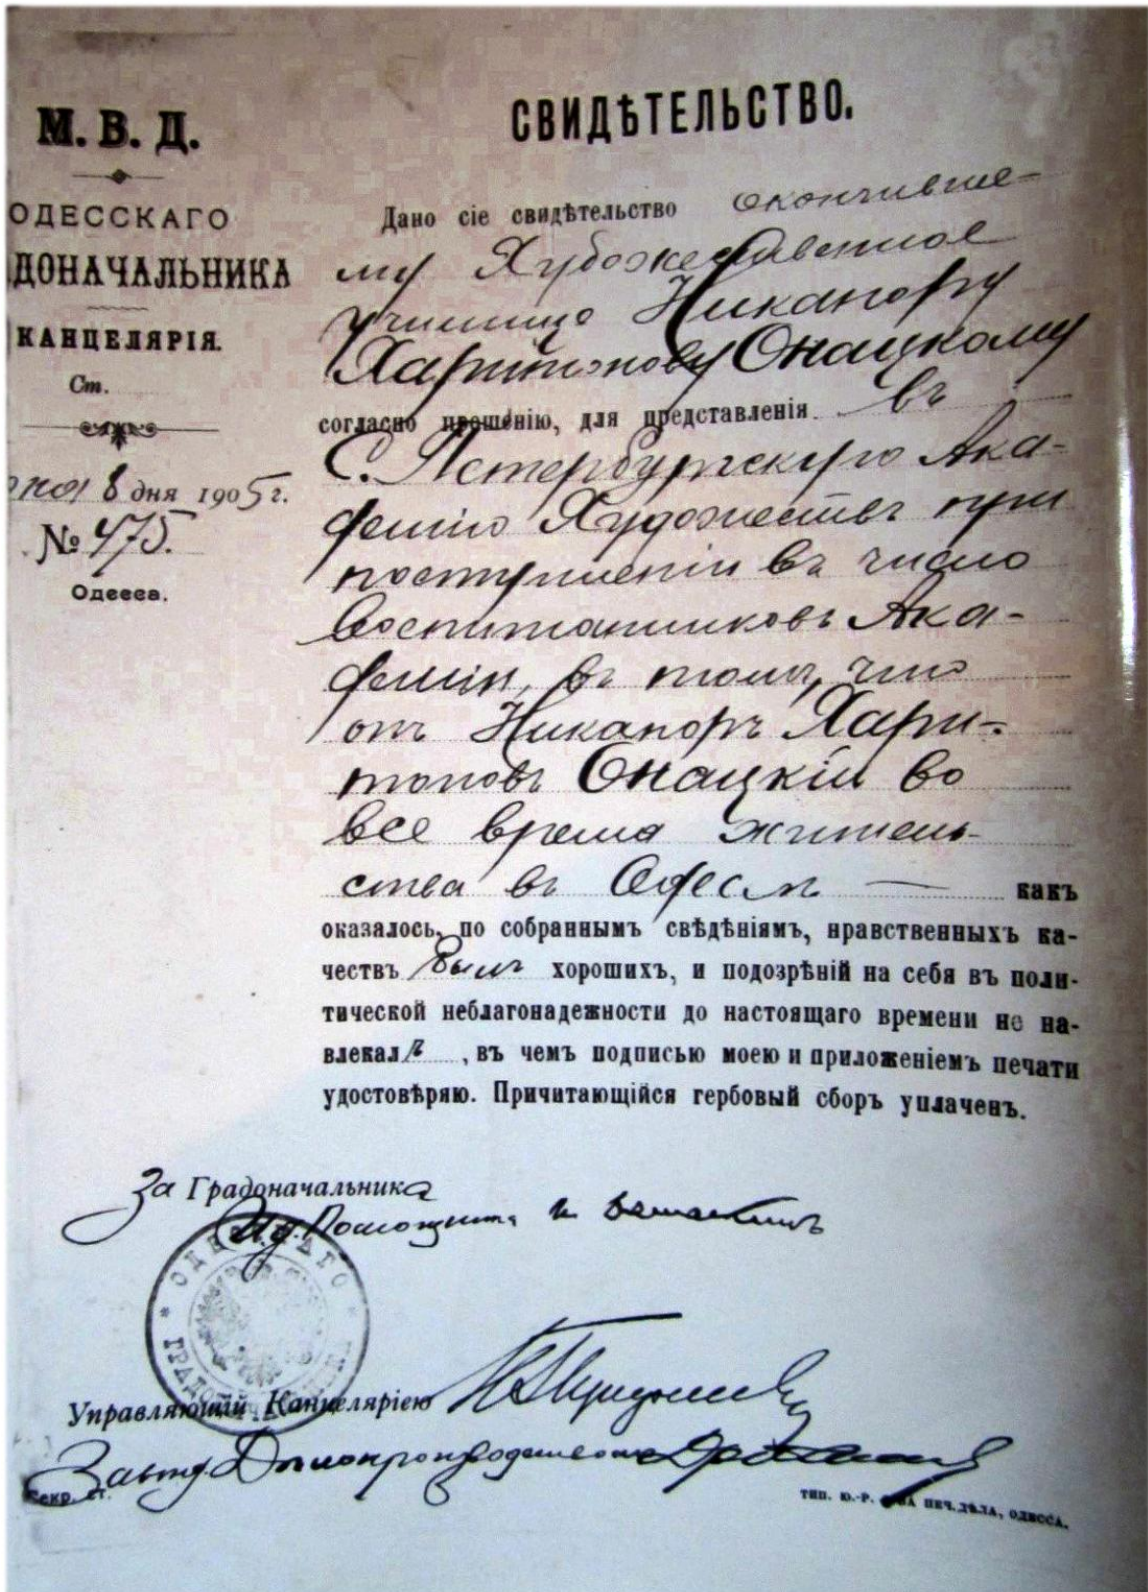 М. В. Д.
ОДЕССКАГО
ДОНАЧАЛЬНИКА
КАНЦЕЛЯРІЯ.
Ст.
8 дня 1905 г.
№ 475.
Одесса.
СВИДѢТЕЛЬСТВО.
Дано сіе свидѣтельство окончивше-
му Художественное
училище Никанору
Харитонову Онацкому
согласно прошенію, для представленія въ
С. Петербургскую Ака-
демію Художествъ при
поступленіи въ число
воспитанниковъ Ака-
деміи, въ томъ, что
онъ Никаноръ Хари-
тоновъ Онацкій во
все время житель-
ства въ Одессѣ — какъ
оказалось, по собраннымъ свѣдѣніямъ, нравственныхъ ка-
чествъ былъ хорошихъ, и подозрѣній на себя въ поли-
тической неблагонадежности до настоящаго времени не на-
влекалъ, въ чемъ подписью моею и приложеніемъ печати
удостовѣряю. Причитающійся гербовый сборъ уплаченъ.
За Градоначальника
И.д. Помощника
ОДЕССКАГО ГРАДОНАЧАЛЬНИКА
Управляющій Канцеляріею
Делопроизводителя
Секр. ст.
ТИП. Ю.-Р. О-ВА ПЕЧ. ДѢЛА, ОДЕССА.